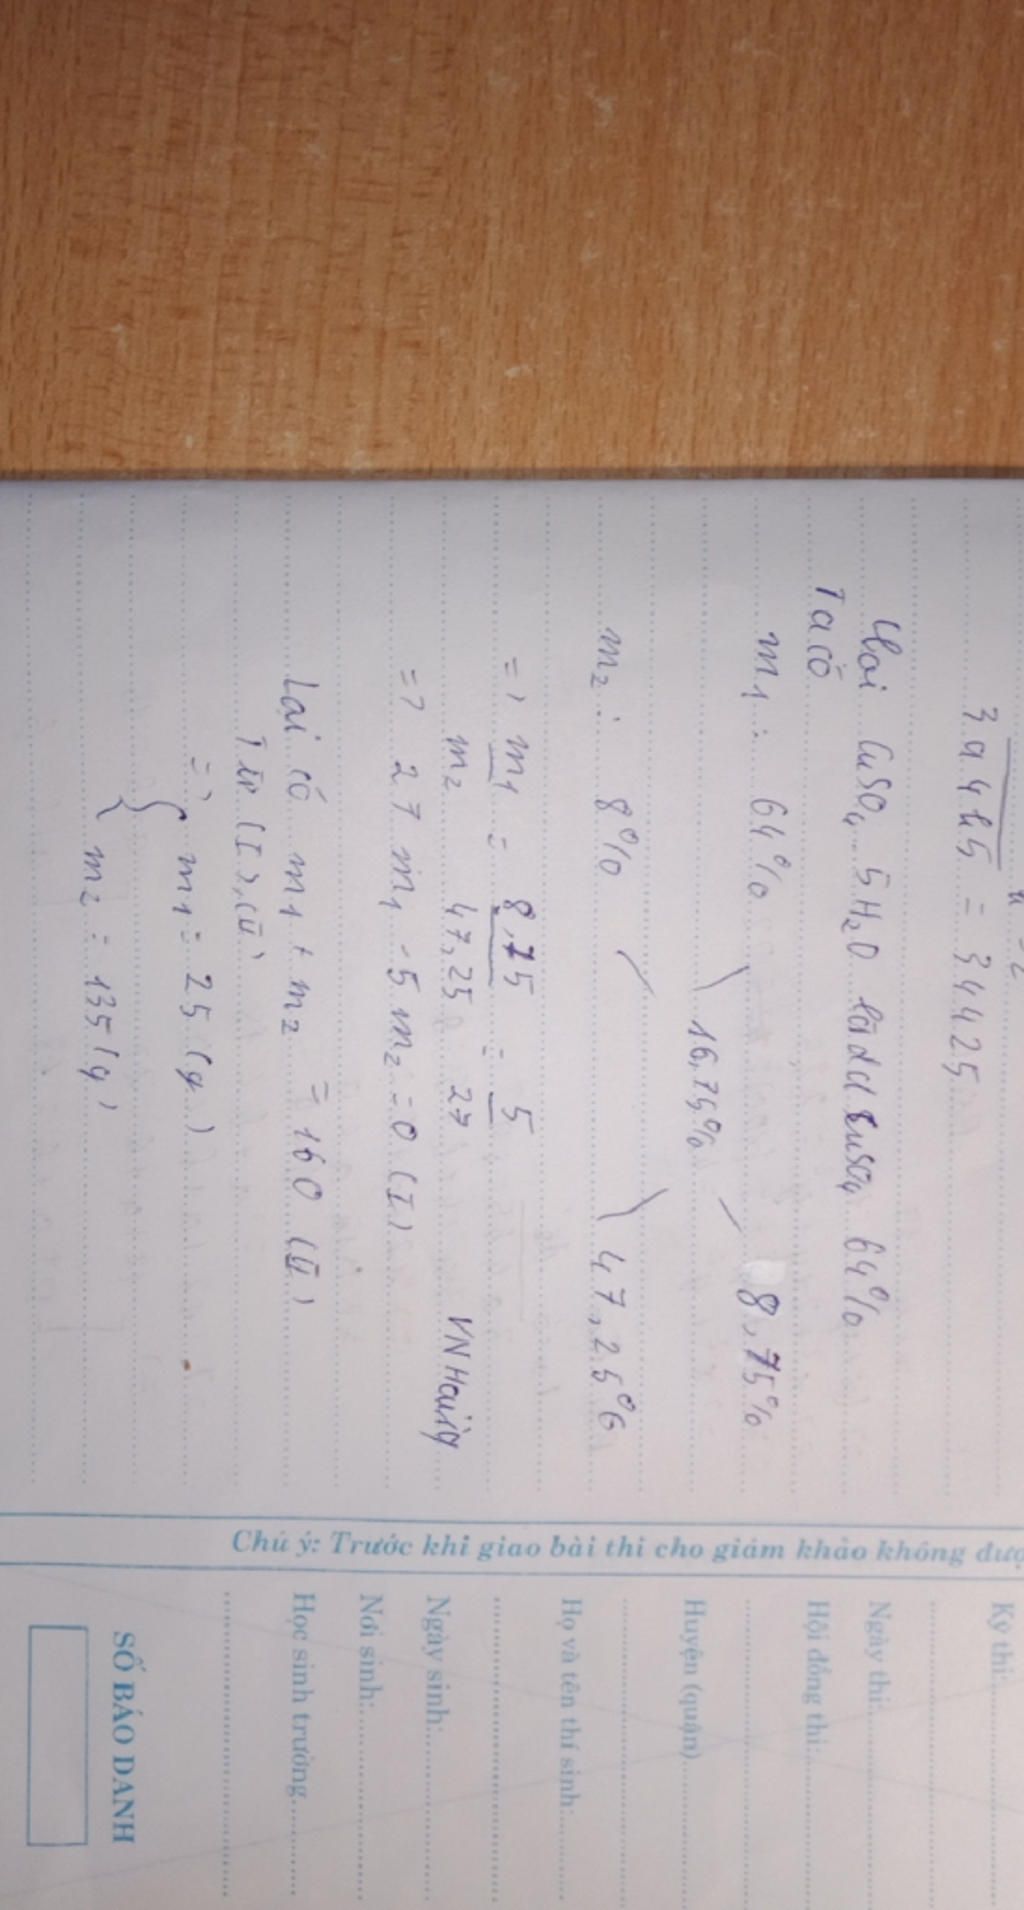 = 34425
Coi CuSO4.5H2O là dd CuSO4 64%
Ta có
m1: 64% 8,75%
16,75%
m2: 8% 47,25%
=> m1/m2 = 8,75/47,25 = 5/27
VNHaiig
=> 27m1 - 5m2 = 0 (I)
Lại có m1 + m2 = 160 (II)
Từ (I),(II)
=> { m1 = 25 (g)
m2 = 135 (g)
Chú ý: Trước khi giao bài thi cho giám khảo không
Kỳ thi:
Ngày thi:
Hội đồng thi:
Huyện (quận)
Họ và tên thí sinh:
Ngày sinh:
Nơi sinh:
Học sinh trường
SỐ BÁO DANH